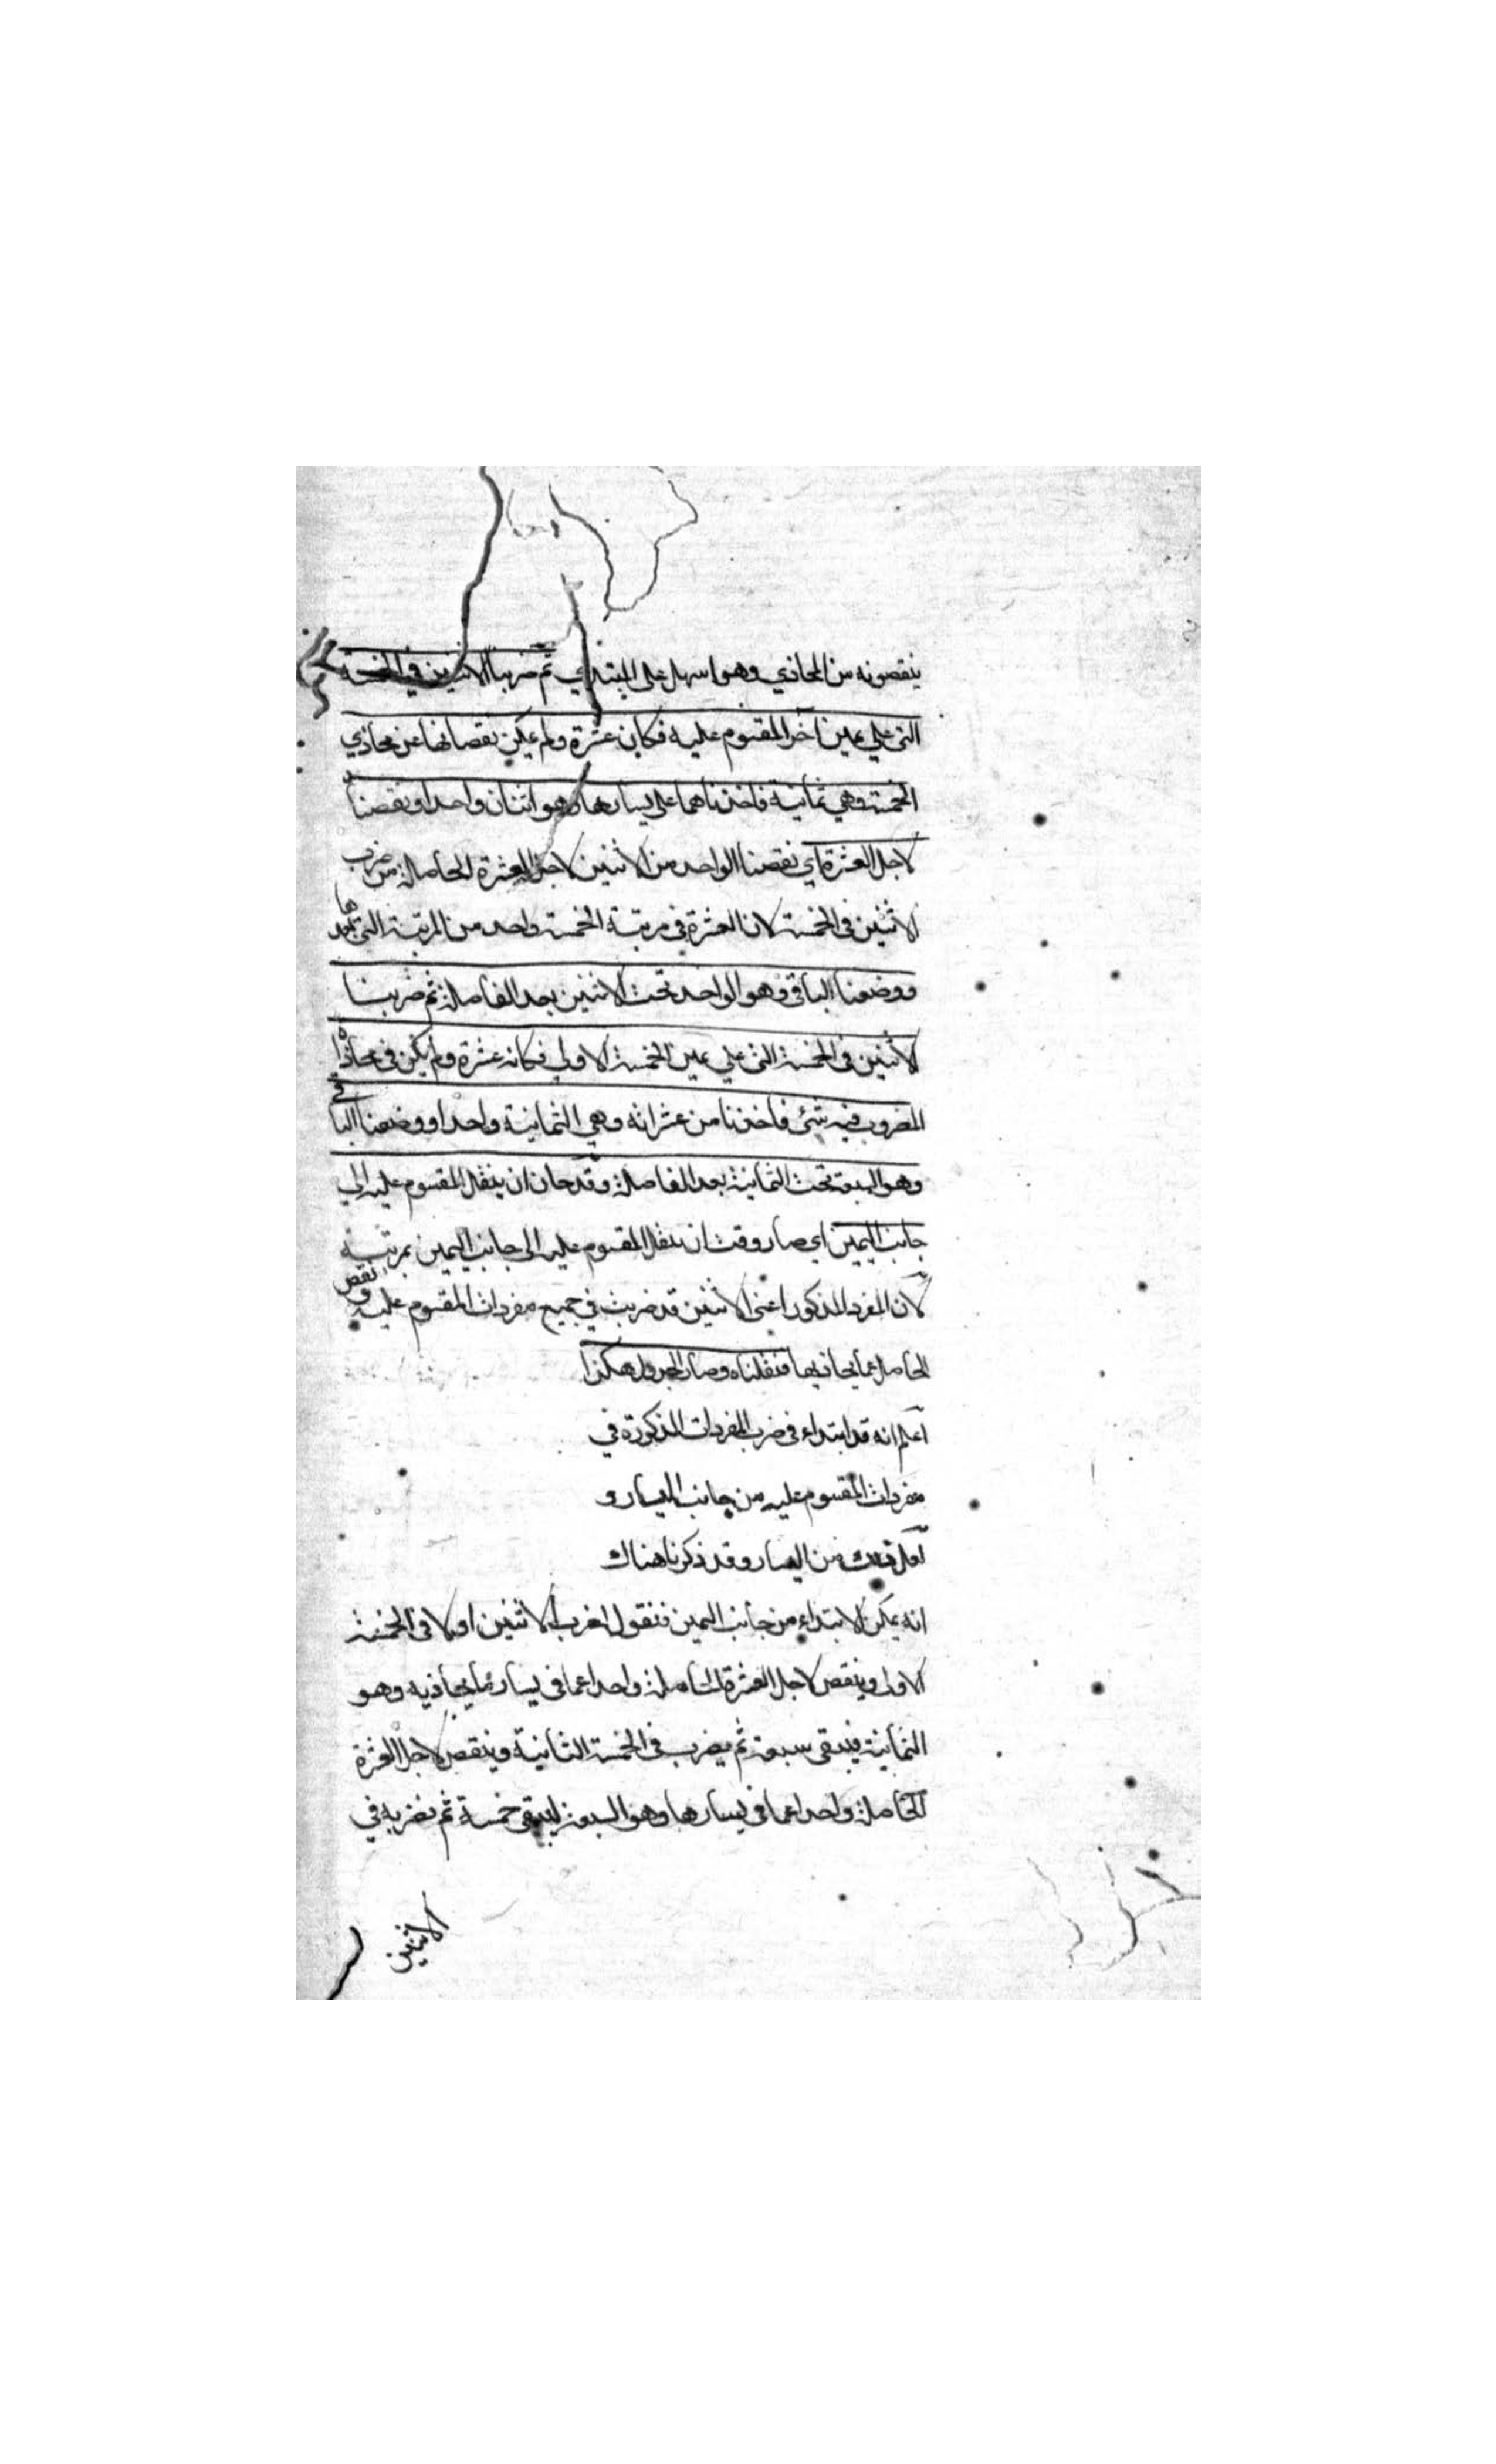 ينقصونه من المحاذي وهو اسهل على المبتدي ثم ضربنا الاثنين في الخمسة
التى على يمين آخر المقسوم عليه فكان عشرة ولم يمكن نقصانها عن محاذي
الخمسة وهي ثمانية فاخذنا مما على يسارها وهو اثنان واحدا ونقصناه
لاجل العشرة اي نقصنا الواحد من الاثنين لاجل العشرة الحاصلة من ضرب
الاثنين فى الخمسة لان العشرة في مرتبة الخمسة واحد من المرتبة التي بعدها
ووضعنا الباقي وهو الواحد تحت الاثنين بعد الفاصلة ثم ضربنا
الاثنين فى الخمسة التى على يمين الخمسة الاولى فكانه عشرة ولم يكن فى محاذاة
المضروب فيه شئ فاخذنا من عشراته وهي الثمانية واحدا ووضعنا الباقي
وهو السبعة تحت الثمانية بعد الفاصلة وقد حان ان ينقل المقسوم عليه الى
جانب اليمين اي صار وقت ان ينقل المقسوم عليه الى جانب اليمين بمرتبة
لان المفرد المذكور اعنى الاثنين قد ضربت في جميع مفردات المقسوم عليه ونقص
الحاصل عما يحاذيها فنقلناه وصار الجدول هكذا
اعلم انه قد ابتداء فى ضرب المفردات المذكورة في
مفردات المقسوم عليه من جانب اليسار و
من اليسار وقد ذكرنا هناك
انه يمكن الابتداء من جانب اليمين فنقول اضرب الاثنين اولا فى الخمسة
الاولى وينقص لاجل العشرة الحاصلة واحدا عما فى يسار ما يحاذيه وهو
الثمانية فيبقى سبعة ثم يضرب فى الخمسة الثانية وينقص لاجل العشرة
الحاصلة واحدا عما فى يسارها وهو السبعة ليبقى خمسة ثم نضربه في
الاثنين